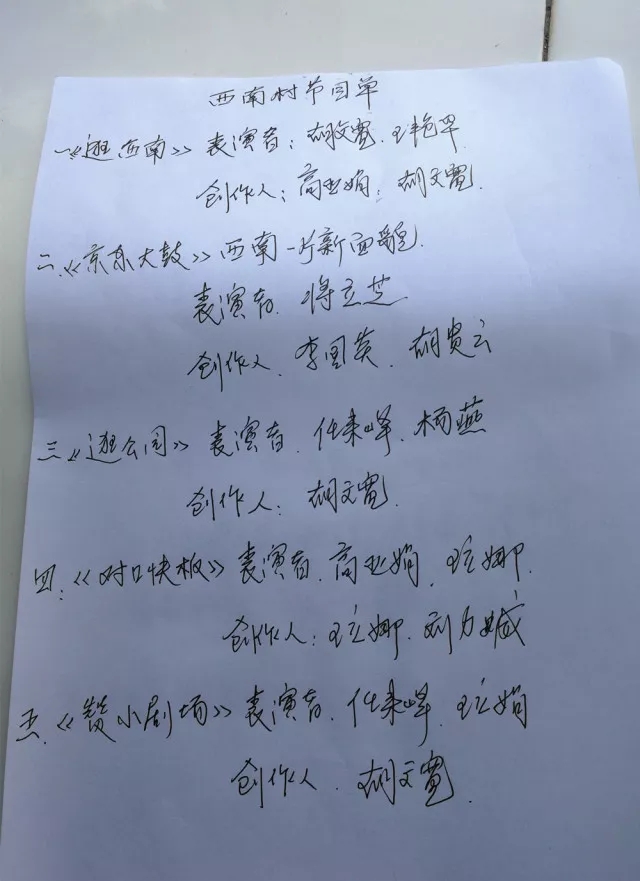 西南村节目单
一《逛西南》表演者：胡文宽．王艳平
创作人：高亚娟：胡文宽．
二．《京东大鼓》西南一片新面貌．
表演者．蒋立芝
创作人．李国英．胡贵云
三《逛公园》表演者．任来峰．杨燕
创作人：胡文宽．
四．《对口快板》表演者．高亚娟．王立娜．
创作人：王立娜．刘力臧
五．《赞小剧场》表演者．任来峰．王立娟
创作人．胡文宽．